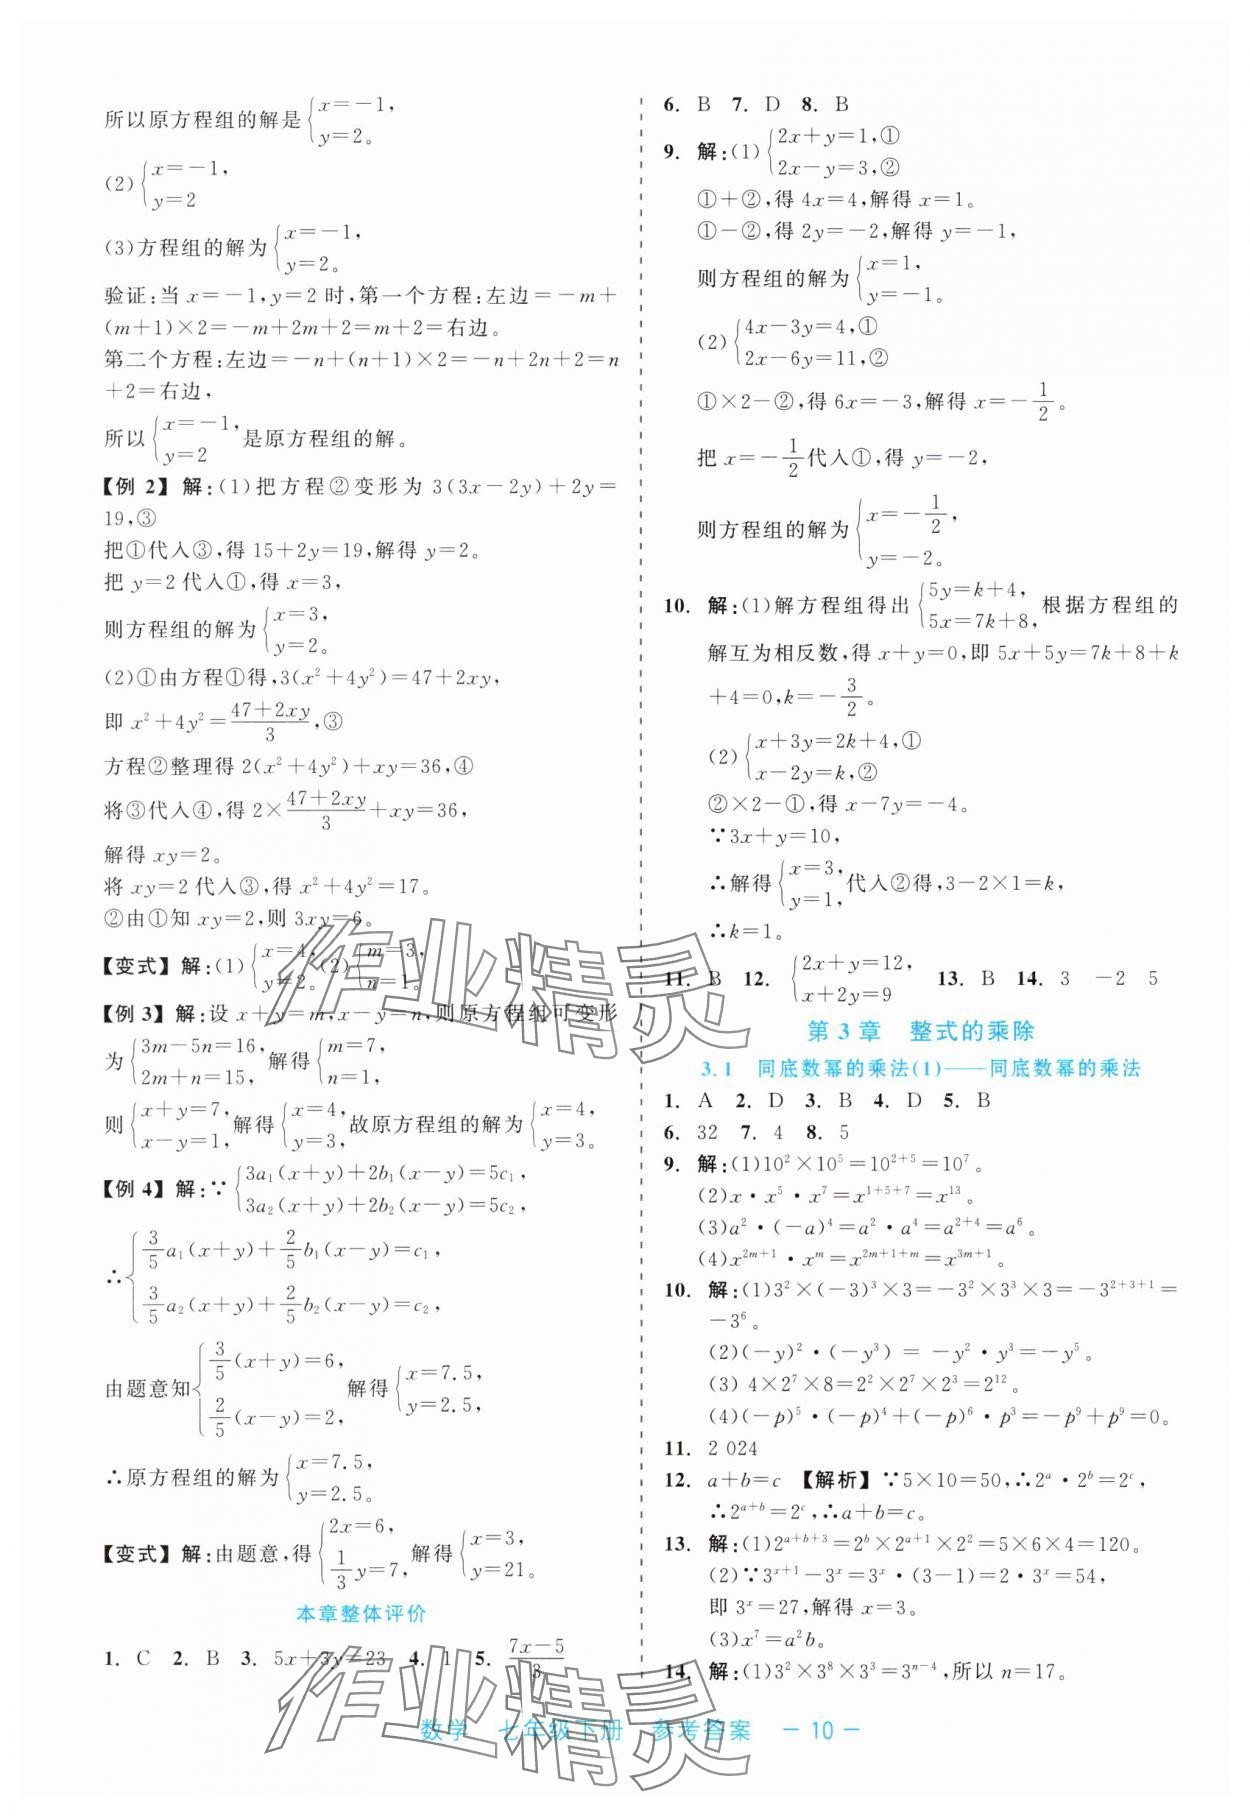 所以原方程组的解是{x=-1, y=2。
(2){x=-1, y=2
(3)方程组的解为{x=-1, y=2。
验证:当 x=-1,y=2 时,第一个方程:左边=-m+
(m+1)×2=-m+2m+2=m+2=右边。
第二个方程:左边=-n+(n+1)×2=-n+2n+2=n
+2=右边,
所以{x=-1, y=2 是原方程组的解。
【例 2】 解:(1)把方程②变形为 3(3x-2y)+2y=
19,③
把①代入③,得 15+2y=19,解得 y=2。
把 y=2 代入①,得 x=3,
则方程组的解为{x=3, y=2。
(2)①由方程①得,3(x²+4y²)=47+2xy,
即 x²+4y²=(47+2xy)/3,③
方程②整理得 2(x²+4y²)+xy=36,④
将③代入④,得 2×(47+2xy)/3+xy=36,
解得 xy=2。
将 xy=2 代入③,得 x²+4y²=17。
②由①知 xy=2,则 3xy=6。
【变式】 解:(1){x=4, y=2。(2){m=3, n=1。
【例 3】 解:设 x+y=m,x-y=n,则原方程组可变形
为{3m-5n=16, 2m+n=15, 解得{m=7, n=1,
则{x+y=7, x-y=1, 解得{x=4, y=3, 故原方程组的解为{x=4, y=3。
【例 4】 解:∵{3a₁(x+y)+2b₁(x-y)=5c₁, 3a₂(x+y)+2b₂(x-y)=5c₂,
∴{3/5 a₁(x+y)+2/5 b₁(x-y)=c₁, 3/5 a₂(x+y)+2/5 b₂(x-y)=c₂,
由题意知{3/5(x+y)=6, 2/5(x-y)=2, 解得{x=7.5, y=2.5,
∴原方程组的解为{x=7.5, y=2.5。
【变式】 解:由题意,得{2x=6, 1/3 y=7, 解得{x=3, y=21。
本章整体评价
1. C 2. B 3. 5x+3y=23 4. 1 5. (7x-5)/3
6. B 7. D 8. B
9. 解:(1){2x+y=1,① 2x-y=3,②
①+②,得 4x=4,解得 x=1。
①-②,得 2y=-2,解得 y=-1,
则方程组的解为{x=1, y=-1。
(2){4x-3y=4,① 2x-6y=11,②
①×2-②,得 6x=-3,解得 x=-1/2。
把 x=-1/2代入①,得 y=-2,
则方程组的解为{x=-1/2, y=-2。
10. 解:(1)解方程组得出{5y=k+4, 5x=7k+8, 根据方程组的
解互为相反数,得 x+y=0,即 5x+5y=7k+8+k
+4=0,k=-3/2。
(2){x+3y=2k+4,① x-2y=k,②
②×2-①,得 x-7y=-4。
∵3x+y=10,
∴解得{x=3, y=1, 代入②得,3-2×1=k,
∴k=1。
11. B 12. {2x+y=12, x+2y=9 13. B 14. 3 -2 5
第 3 章 整式的乘除
3.1 同底数幂的乘法(1)——同底数幂的乘法
1. A 2. D 3. B 4. D 5. B
6. 32 7. 4 8. 5
9. 解:(1)10²×10⁵=10²⁺⁵=10⁷。
(2)x·x⁵·x⁷=x¹⁺⁵⁺⁷=x¹³。
(3)a²·(-a)⁴=a²·a⁴=a²⁺⁴=a⁶。
(4)x^(2m+1)·x^m=x^(2m+1+m)=x^(3m+1)。
10. 解:(1)3²×(-3)³×3=-3²×3³×3=-3²⁺³⁺¹=
-3⁶。
(2)(-y)²·(-y³)=-y²·y³=-y⁵。
(3) 4×2⁷×8=2²×2⁷×2³=2¹²。
(4)(-p)⁵·(-p)⁴+(-p)⁶·p³=-p⁹+p⁹=0。
11. 2 024
12. a+b=c 【解析】∵5×10=50,∴2^a·2^b=2^c,
∴2^(a+b)=2^c,∴a+b=c。
13. 解:(1)2^(a+b+3)=2^b×2^(a+1)×2²=5×6×4=120。
(2)∵3^(x+1)-3^x=3^x·(3-1)=2·3^x=54,
即 3^x=27,解得 x=3。
(3)x⁷=a²b。
14. 解:(1)3²×3⁸×3³=3^(n-4),所以 n=17。
数学 七年级下册 参考答案 -10-
作业精灵
作业精灵